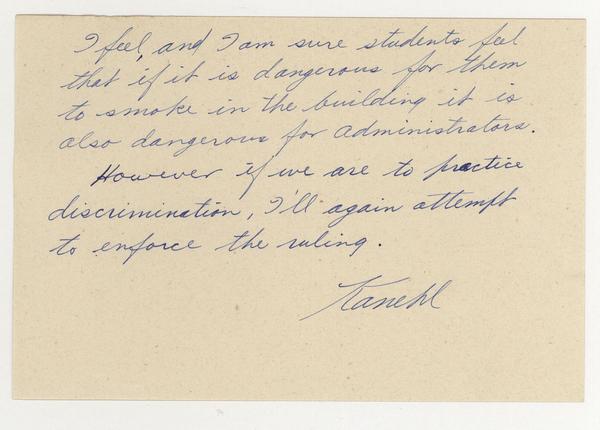 I feel, and I am sure students feel
that if it is dangerous for them
to smoke in the building it is
also dangerous for administrators.
However if we are to practice
discrimination, I'll again attempt
to enforce the ruling.
Kanehl